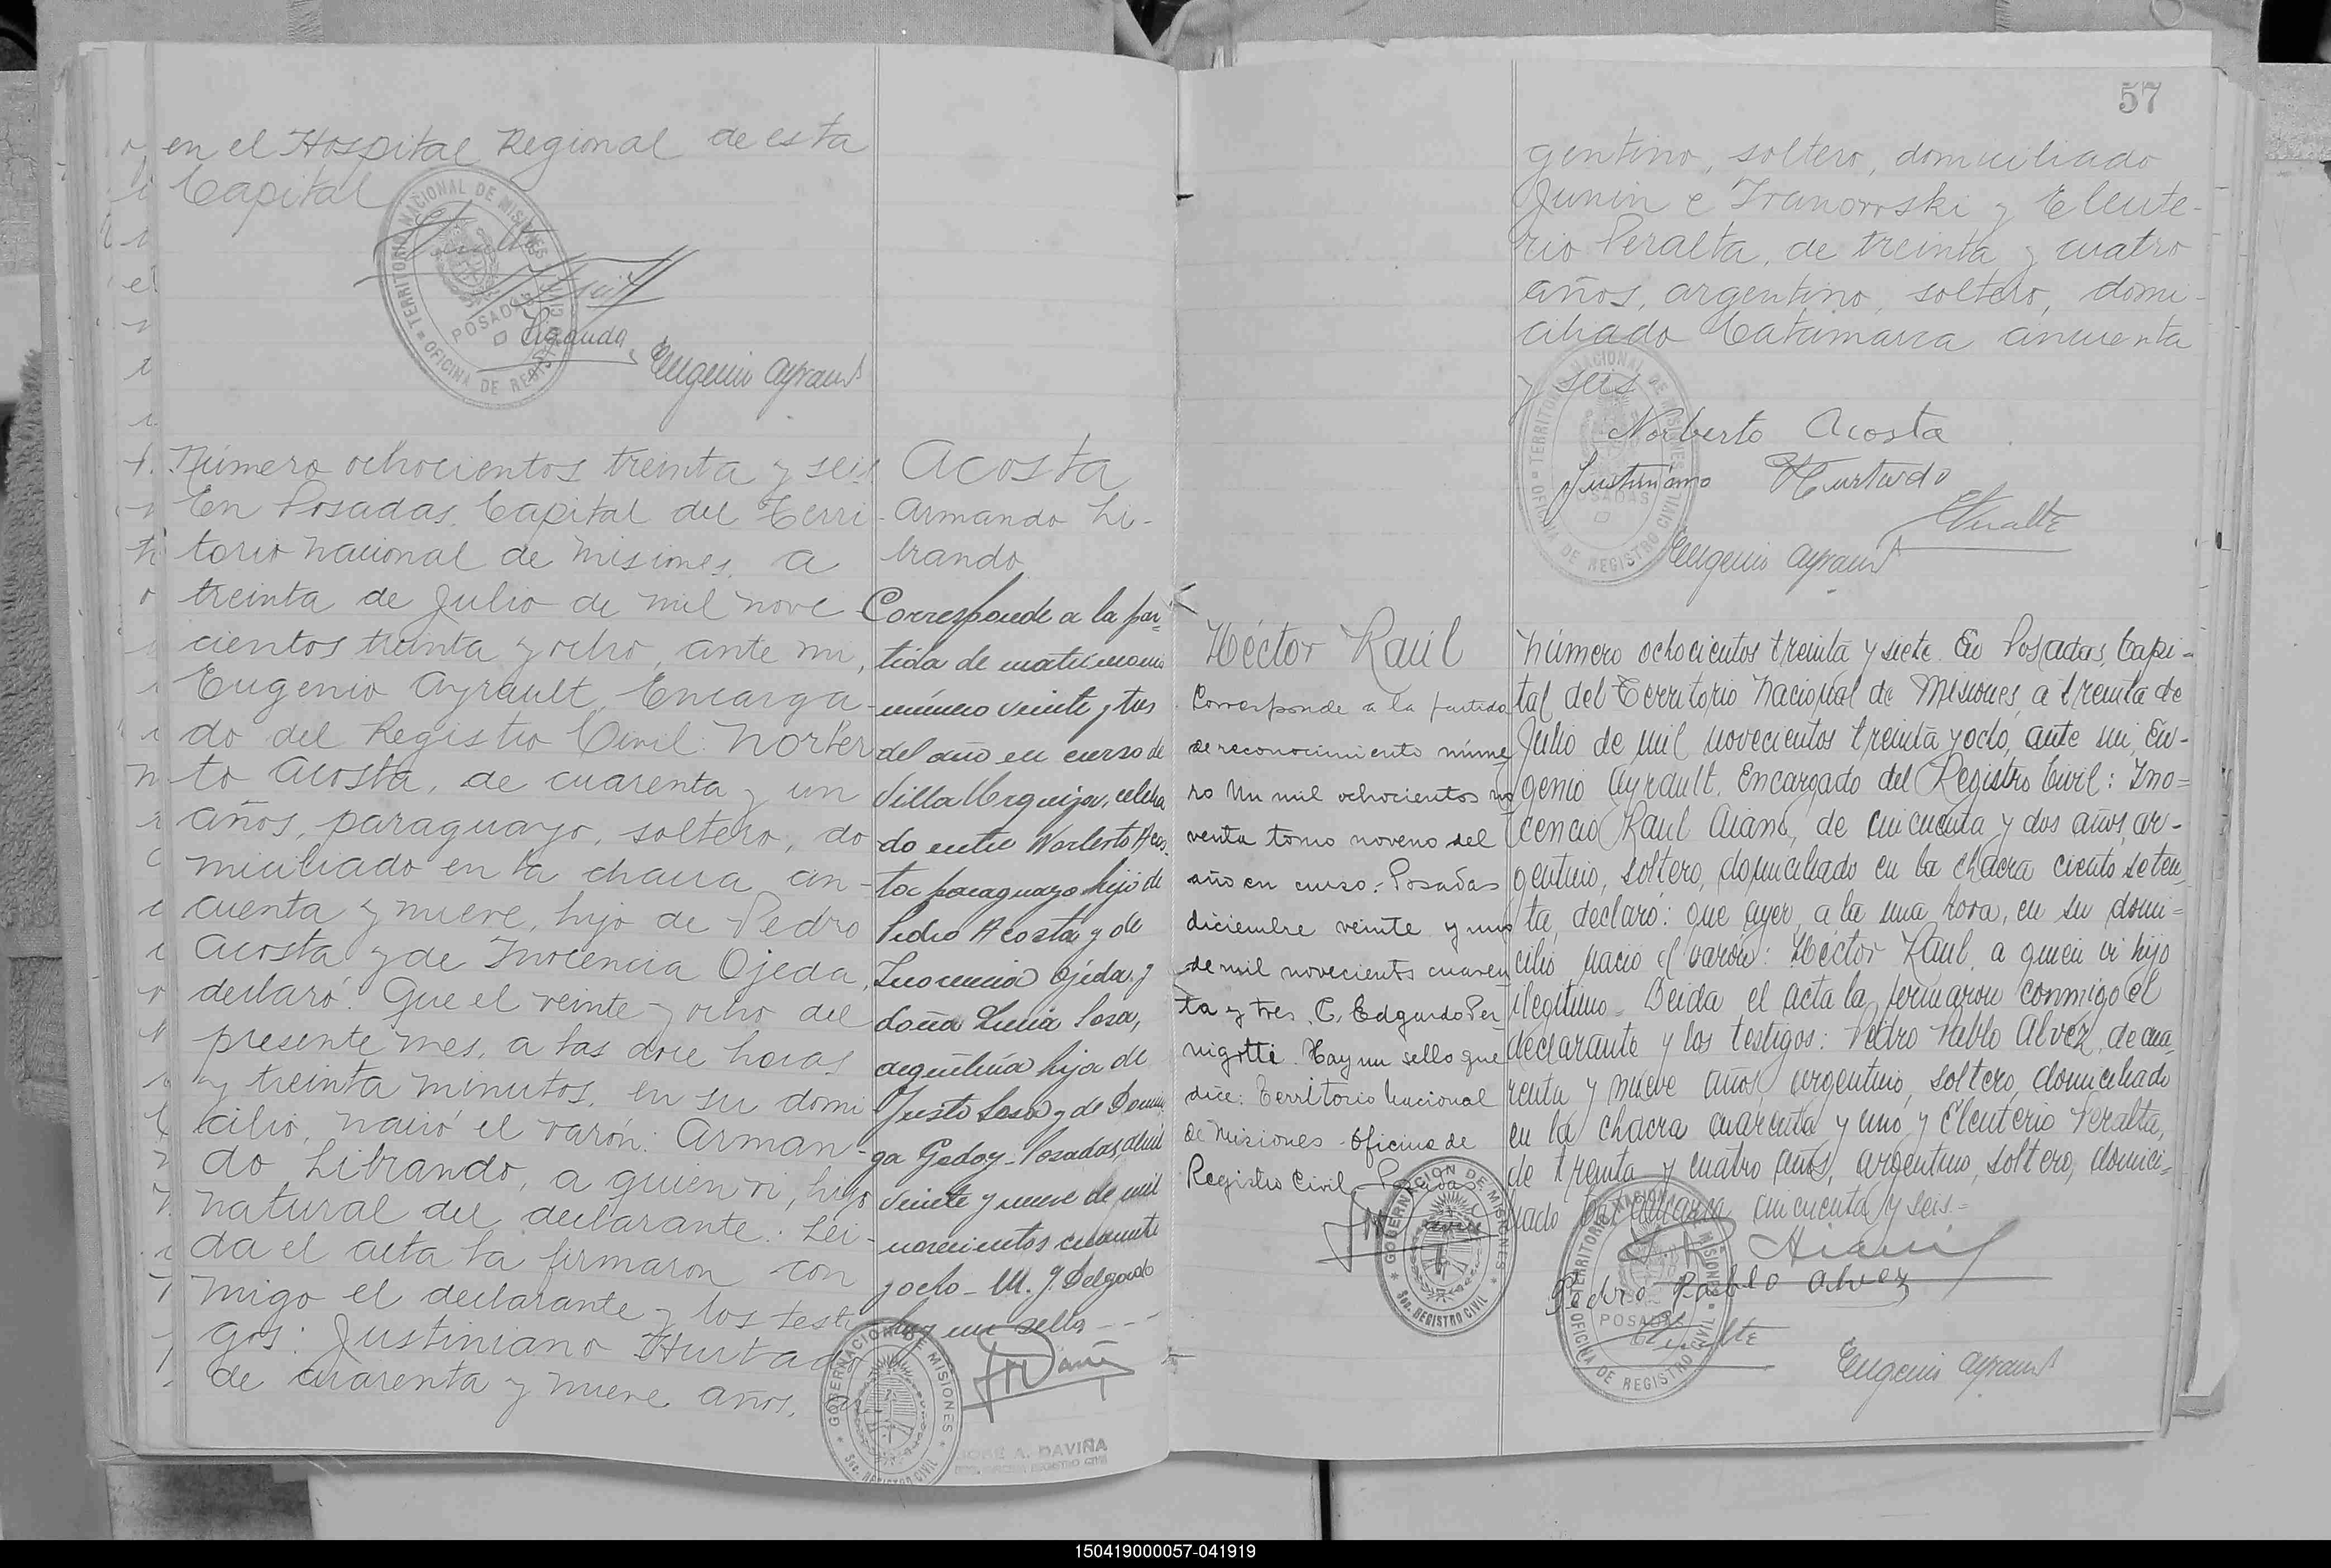 en el Hospital Regional de esta
Capital
TERRITORIO NACIONAL DE MISIONES
POSADAS
OFICINA DE REGISTRO CIVIL
Eugenio Ayrault
Número ochocientos treinta y seis
En Posadas, Capital del Terri-
torio Nacional de Misiones, a
treinta de Julio de mil nove-
cientos treinta y ocho, ante mi,
Eugenio Ayrault, Encarga-
do del Registro Civil: Norber
to Acosta, de cuarenta y un
años, paraguayo, soltero, do
miciliado en la chacra cin-
cuenta y nueve, hijo de Pedro
Acosta y de Inocencia Ojeda,
declaró: Que el veinte y ocho del
presente mes, a las doce horas
y treinta minutos, en su domi
cilio, nació el varón: Arman-
do Librando, a quien vi, hijo
natural del declarante. Lei-
da el acta la firmaron con
migo el declarante y los testi
gos: Justiniano Hurtado
de cuarenta y nueve años, ar-
Acosta
Armando Li-
brando
Corresponde a la par-
tida de matrimonio
número veinte y tres
del año en curso de
Villa Urquiza, celebra
do entre Norberto Acos-
ta paraguayo hijo de
Pedro Acosta y de
Inocencia Ojeda y
doña Lucia Sosa,
argentina hija de
Justo Sosa y de Domin
ga Godoy - Posadas, abril
veinte y nueve de mil
novecientos cuarenta
y ocho - M. J. Delgado
hay un sello ---
GOBERNACION DE MISIONES
Sec. REGISTRO CIVIL
JOSÉ A. DAVIÑA
57
gentino, soltero, domiciliado
Junin e Ivanowski y Eleute-
rio Peralta, de treinta y cuatro
años, argentino, soltero, domi-
ciliado Catamarca cincuenta
y seis
TERRITORIO NACIONAL DE MISIONES
POSADAS
OFICINA DE REGISTRO CIVIL
Norberto Acosta
Justiniano Hurtado
EPeralta
Eugenio Ayrault
Héctor Raúl
Corresponde a la partida
de reconocimiento núme
ro Un mil ochocientos no
venta tomo noveno del
año en curso: Posadas
diciembre veinte y uno
de mil novecientos cuaren
ta y tres. C. Edgardo Per
nigotti. Hay un sello que
dice: Territorio Nacional
de Misiones - Oficina de
Registro Civil, Posadas
GOBERNACION DE MISIONES
Sec. REGISTRO CIVIL
Número ochocientos treinta y siete. En Posadas, Capi-
tal del Territorio Nacional de Misiones, a treinta de
Julio de mil novecientos treinta y ocho, ante mi, Eu-
genio Ayrault, Encargado del Registro Civil: Ino=
cencio Raul Aiano, de cincuenta y dos años, ar-
gentino, soltero, domiciliado en la chacra ciento seten
ta, declaró: que ayer, a la una hora, en su domi=
cilio nació el varón: Héctor Raúl, a quien vi hijo
ilegítimo. Leida el acta la firmaron conmigo el
declarante y los testigos: Pedro Pablo Alvez, de cua
renta y nueve años, argentino, soltero, domiciliado
en la chacra cuarenta y uno y Eleuterio Peralta,
de treinta y cuatro años, argentino, soltero, domici=
liado Catamarca cincuenta y seis.=
TERRITORIO NACIONAL DE MISIONES
POSADAS
OFICINA DE REGISTRO CIVIL
Pedro Pablo Alvez
EPeralta
Eugenio Ayrault
150419000057-041919